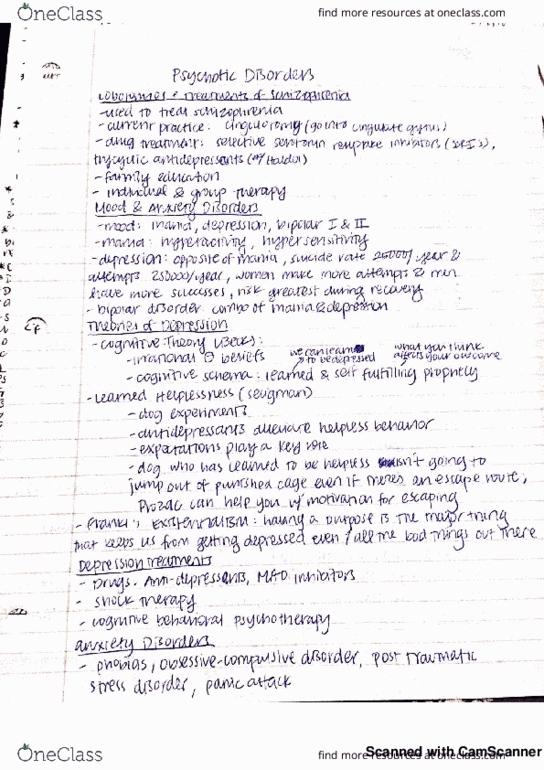 OneClass find more resources at oneclass.com
Psychotic Disorders
Lobotomies & Treatments of Schizophrenia
- used to treat schizophrenia
- current practice: cingulotomy (go into cingulate gyrus)
- drug treatment: selective serotonin reuptake inhibitors (SSRI's),
tricyclic antidepressants (w/ Haldol)
- family education
- individual & group therapy
Mood & Anxiety Disorders
- mood: mania, depression, bipolar I & II
- mania: hyperactivity, hypersensitivity
- depression: opposite of mania, suicide rate /year &
attempts 250000/year, women make more attempts & men
have more successes, risk greatest during recovery
- bipolar disorder combo of mania & depression
Theories of Depression
- cognitive theory
- irrational ⊖ beliefs we can learn to be depressed what you think affects your outcome
- cognitive schema: learned & self fulfilling prophecy
- Learned Helplessness (
- dog experiments
- antidepressants alleviate helpless behavior
- expectations play a key role
- dog who has learned to be helpless isn't going to
jump out of punished cage even if theres an escape route,
Prozac can help you w/ motivation for escaping
- Frankl's existentialism: having a purpose is the major thing
that keeps us from getting depressed even / all the bad things out there
Depression Treatments
- Drugs. Anti-depressants, MAO inhibitors
- shock therapy
- cognitive behavioral psychotherapy
Anxiety Disorders
- phobias, obsessive-compulsive disorder, post traumatic
stress disorder, panic attack
Scanned with CamScanner
OneClass find more resources at oneclass.com